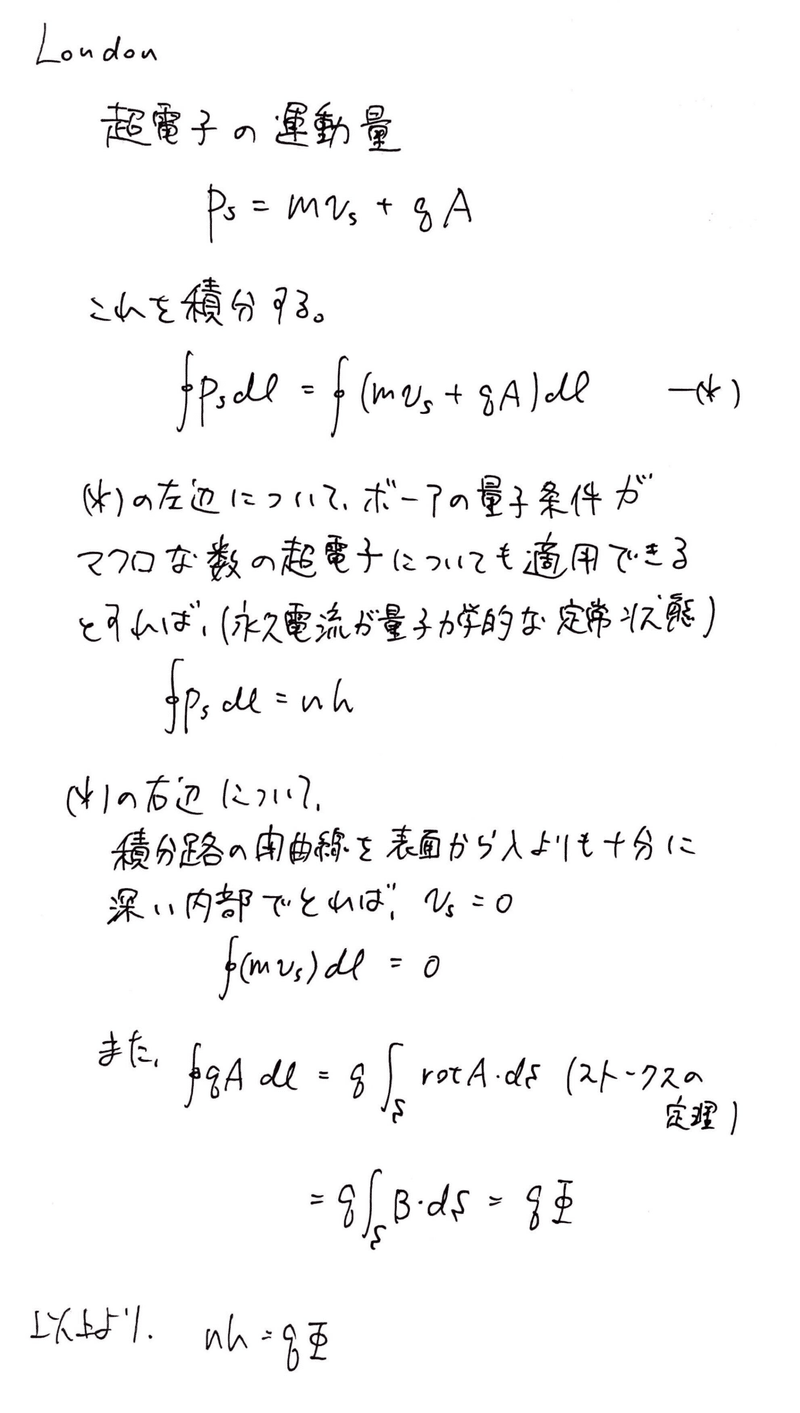 London
超電子の運動量
ps = mvs + qA
これを積分する。
∮ps dl = ∮(mvs + qA)dl —(*)
(*)の左辺について、ボーアの量子条件が
マクロな数の超電子についても適用できる
とすれば、(永久電流が量子力学的な定常状態)
∮ps dl = nh
(*)の右辺について、
積分路の閉曲線を表面からλよりも十分に
深い内部でとれば、vs = 0
∮(mvs)dl = 0
また、∮qA dl = q∫S rotA・dS (ストークスの
定理)
= q∫S B・dS = qΦ
以上より、nh = qΦ